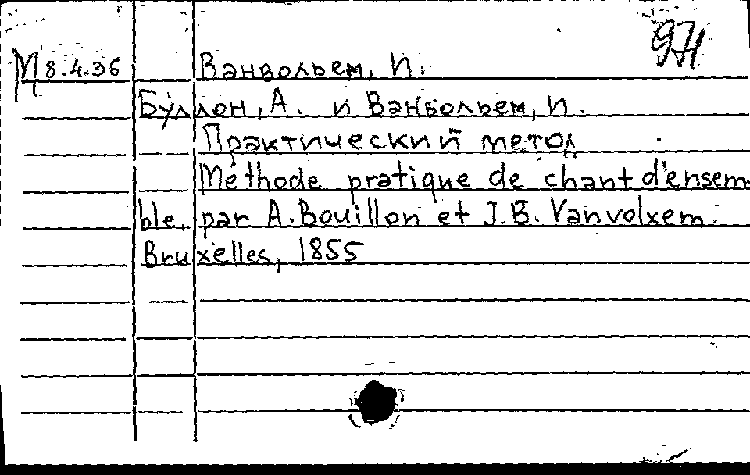 М 8.4.36 Ванвольем, И.
Буллон, А. и Ванвольем, И.
Практический метод
Méthode pratique de chant d'ensem-
ble, par A. Bouillon et J.B. Vanvolxem.
Bruxelles, 1855